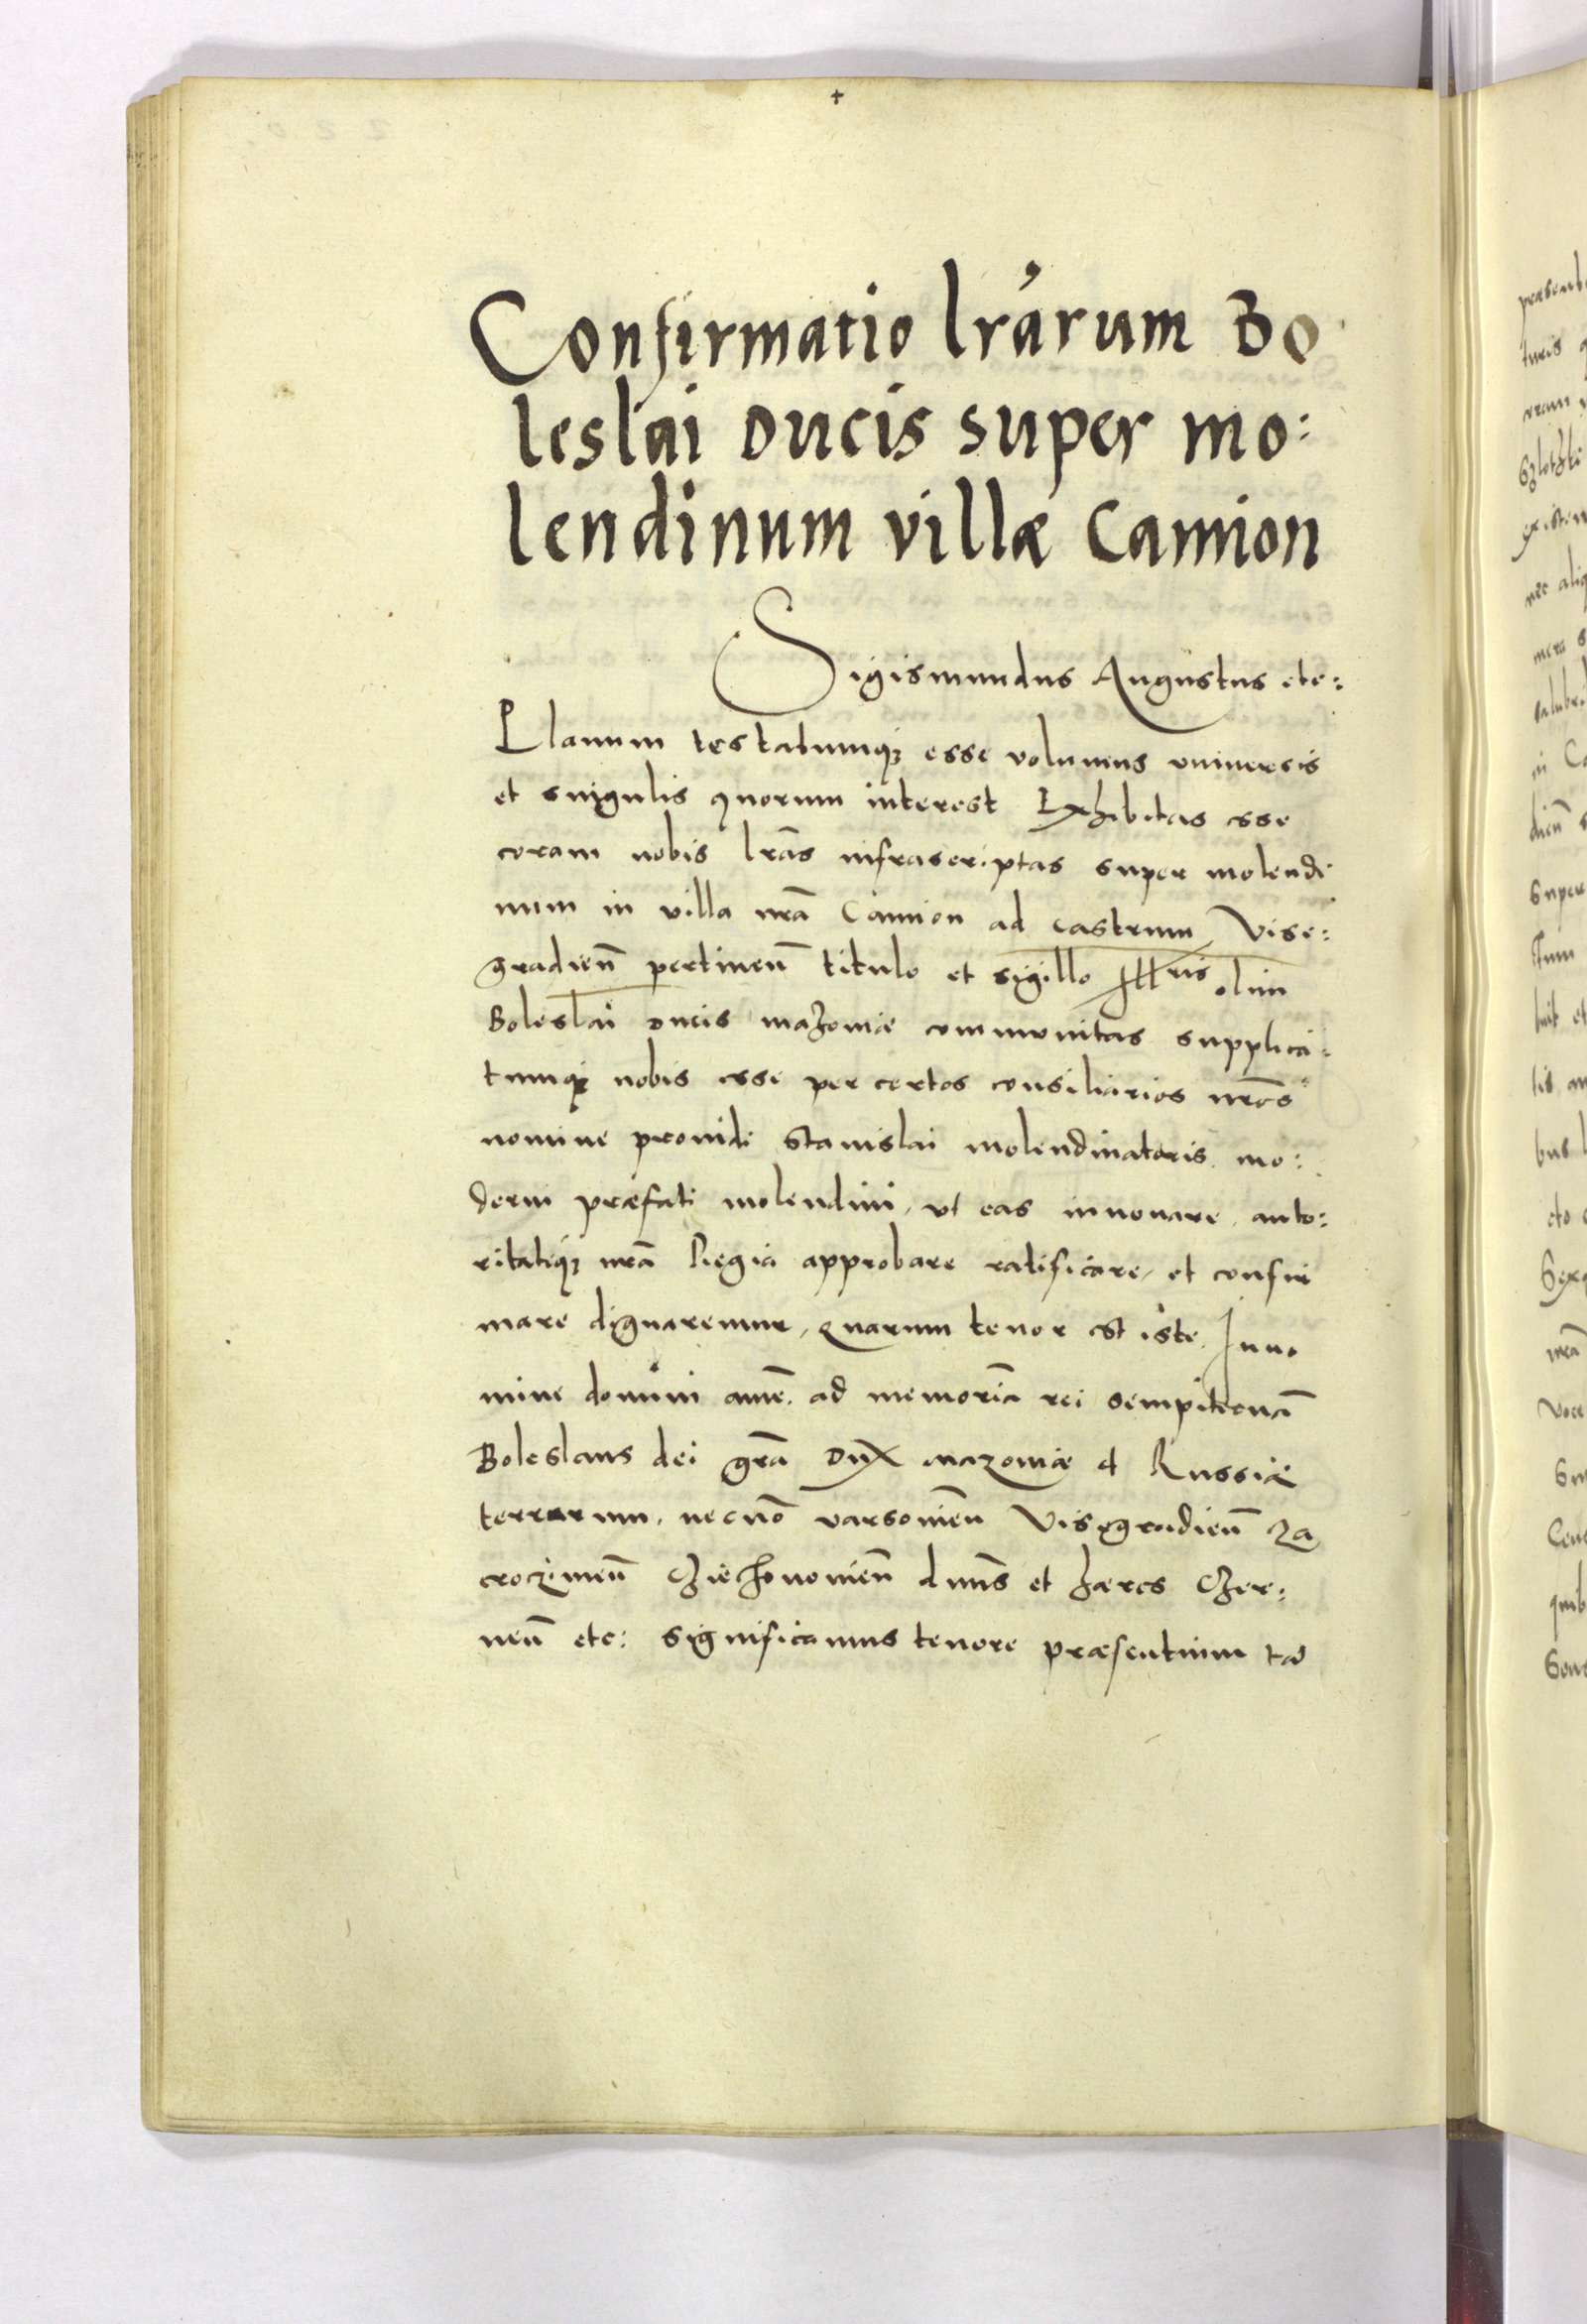 +
Confirmatio lrárum Bo
leslai Ducis super mo:
lendinum villæ Camion
Sigismundus Augustus etc:
Planum testatumq3 esse volumus vniuersis
et singulis quorum interest Exhibitas esse
coram nobis lrãs infrascriptas super molendi
num in villa nrã Camion ad castrum Vise:
gradieñ pertineñ titulo et sigillo Illris olim
Boleslai Ducis mazouiæ communitas supplica:
tumq3 nobis esse per certos consiliarios nrõs
nomine prouidi Stanislai molendinatoris mo:
derni præfati molendini, vt eas innouare auto:
ritatiq3 nrã Regia approbare ratificare, et confir
mare dignaremur, quarum tenor est iste. In no
mine domini amẽ. ad memoriã rei sempiternã
Boleslaus dei grã Dux Mazouiæ et Russiæ
terrarum, necnõ varsouieñ Visegradieñ Za
crozimeñ Cziechonouieñ dnũs et hæres Czer:
neñ etc: significamus tenore præsentium tã